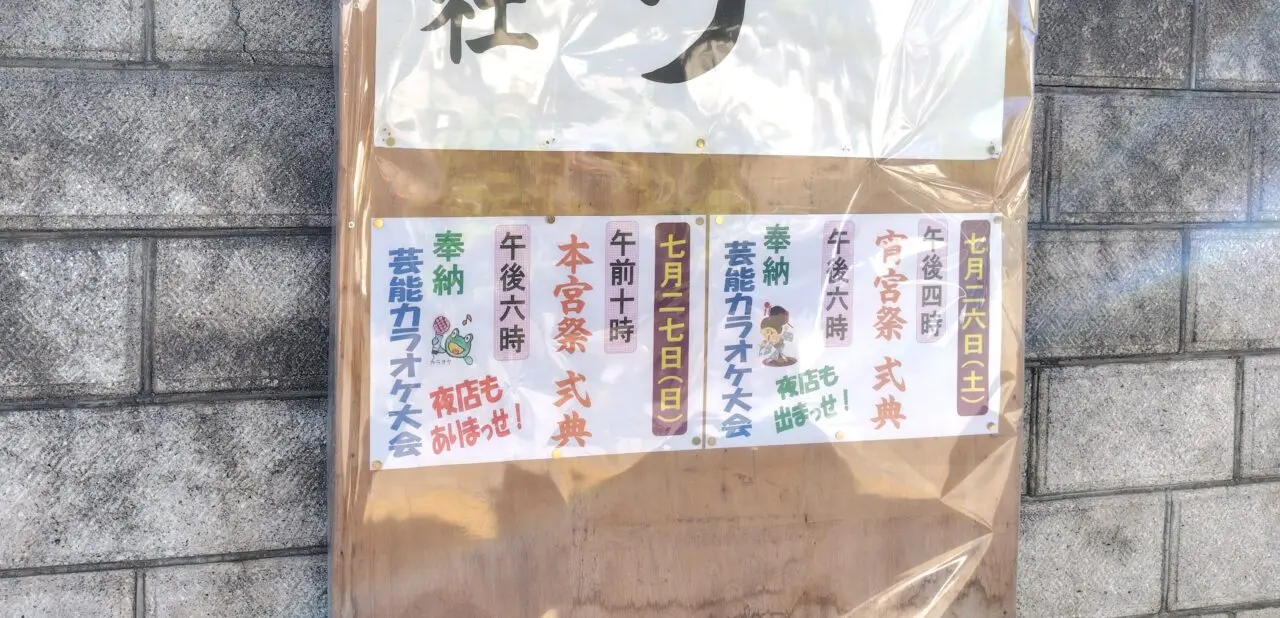 社
七月二六日(土)
午後四時
宵宮祭 式典
午後六時
奉納
芸能カラオケ大会
夜店も
出まっせ!
七月二七日(日)
午前十時
本宮祭 式典
午後六時
奉納
芸能カラオケ大会
夜店も
ありまっせ!